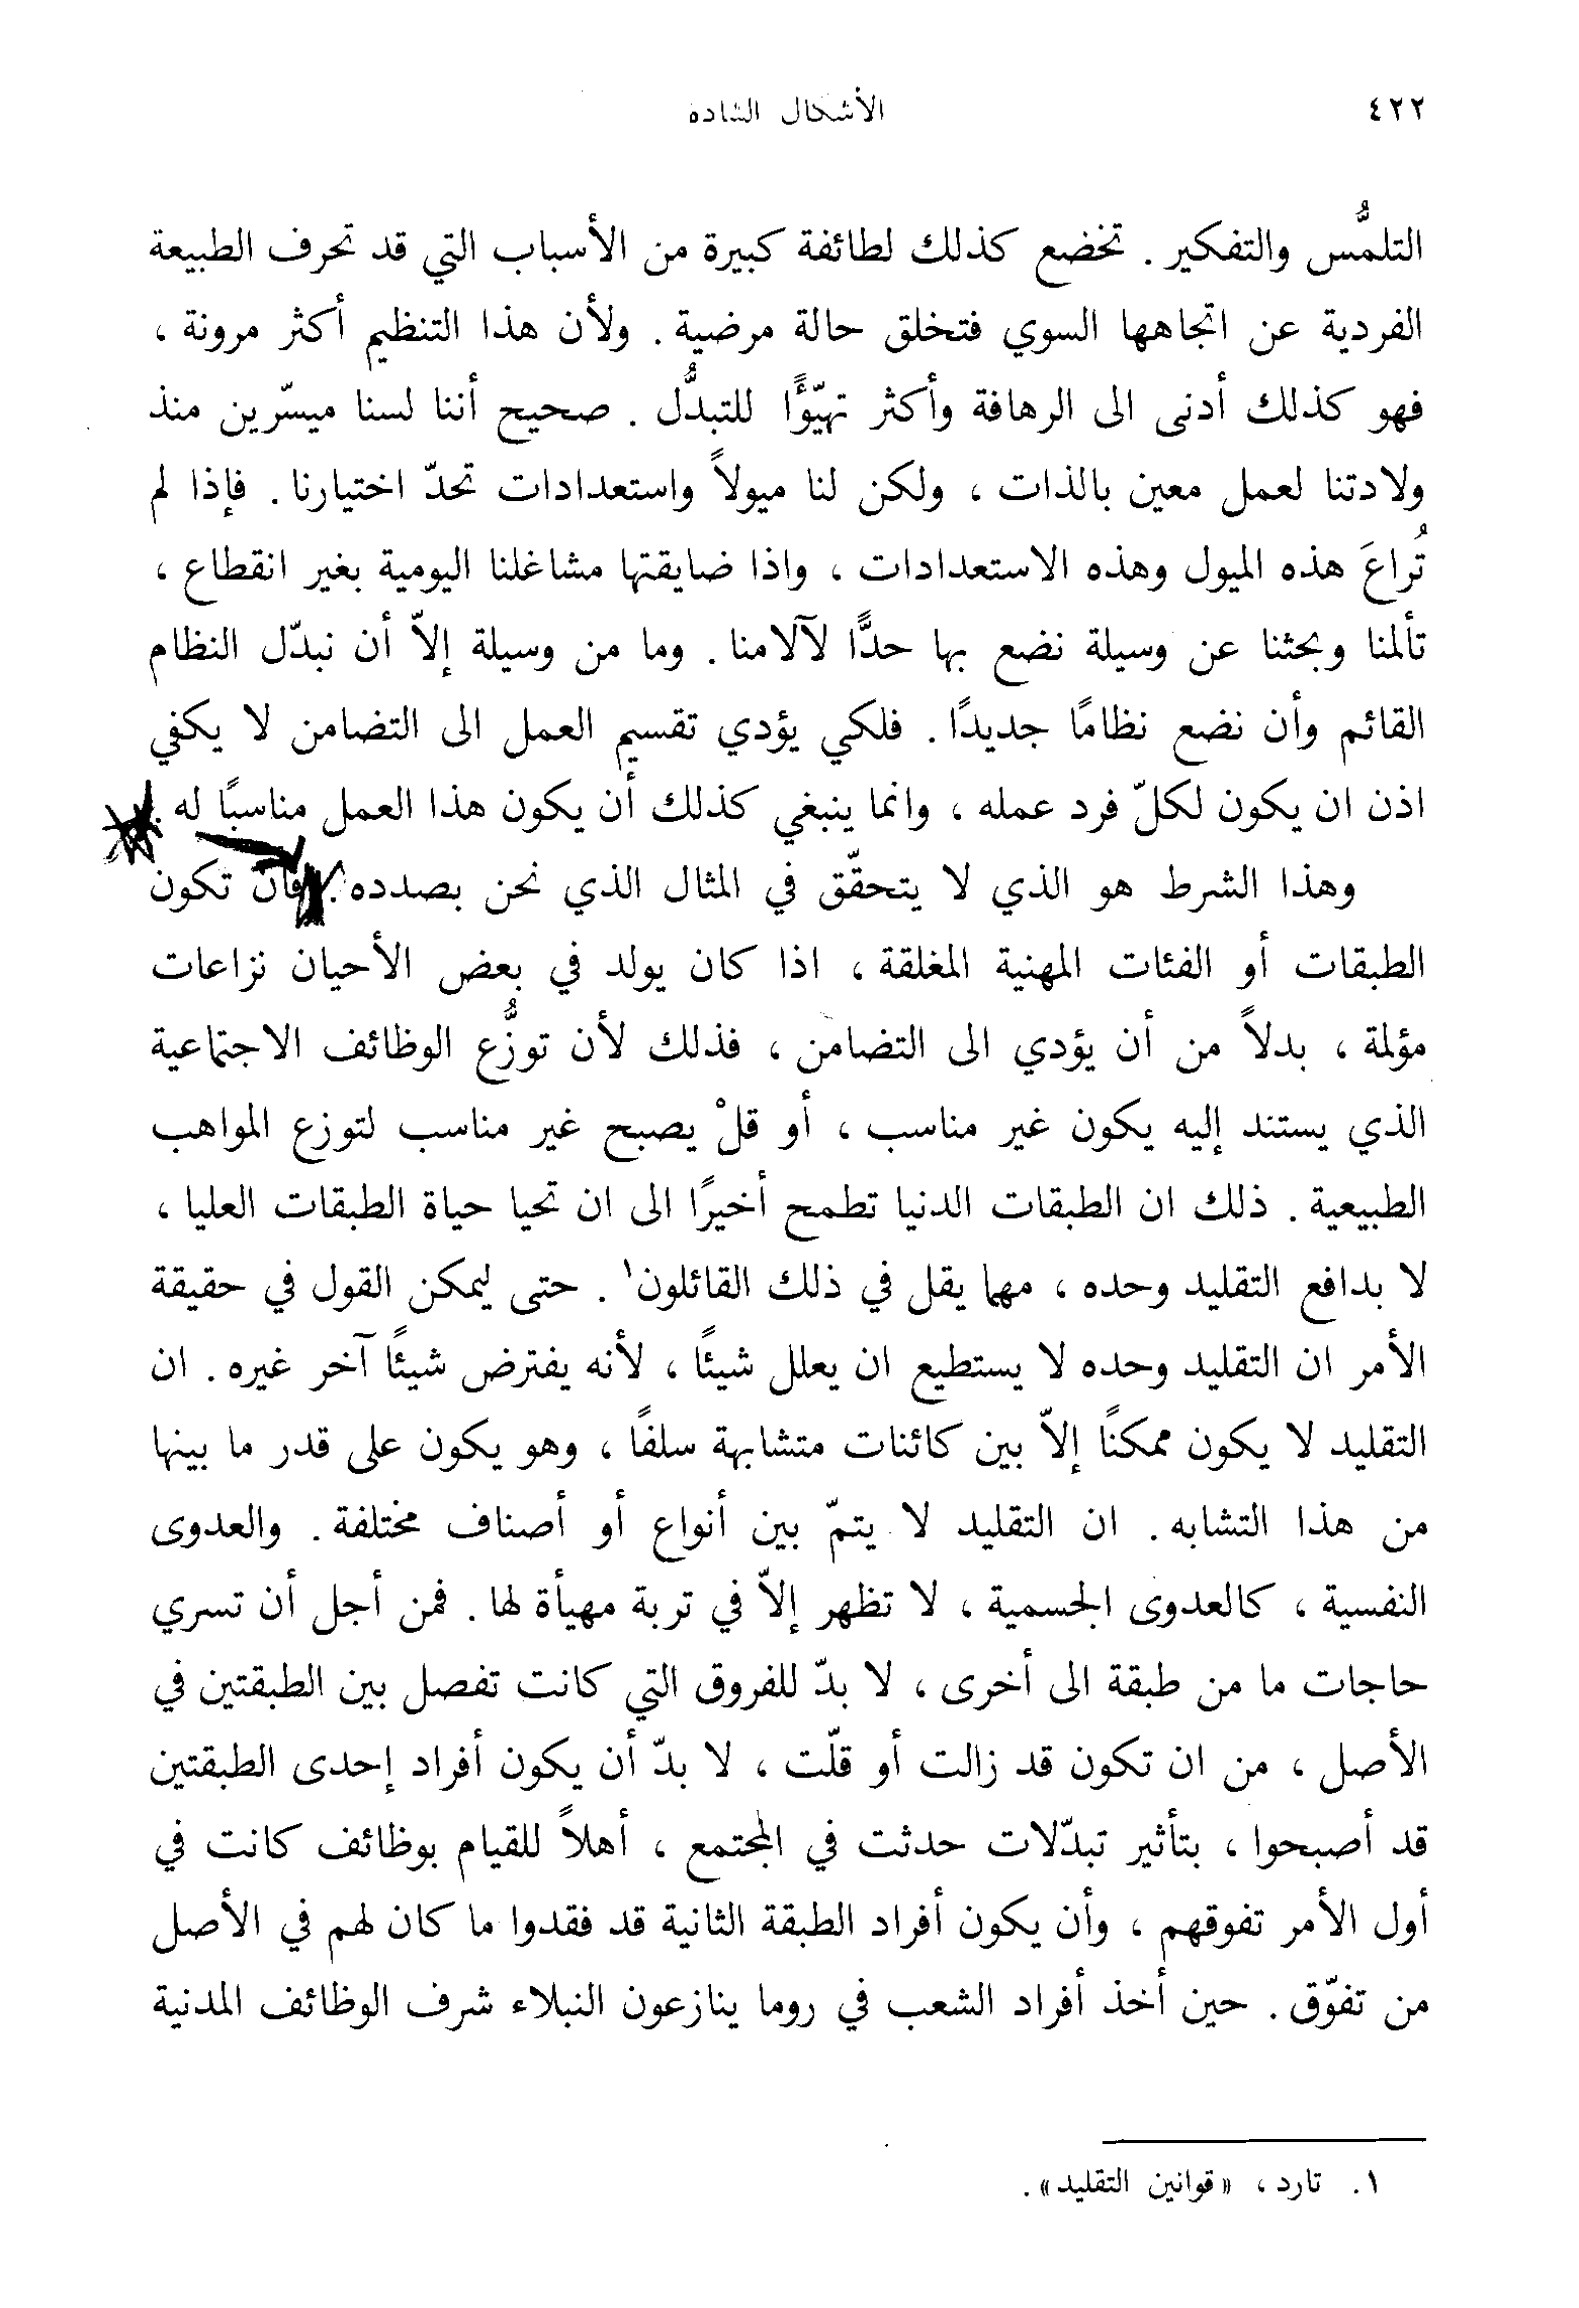 ٤٢٢
الأشكال الشاذة
التلمُّس والتفكير . تخضع كذلك لطائفة كبيرة من الأسباب التي قد تحرف الطبيعة
الفردية عن اتجاهها السوي فتخلق حالة مرضية . ولأن هذا التنظيم أكثر مرونة ،
فهو كذلك أدنى الى الرهافة وأكثر تهيّؤًا للتبدُّل . صحيح أننا لسنا ميسّرين منذ
ولادتنا لعمل معين بالذات ، ولكن لنا ميولاً واستعدادات تحدّ اختيارنا . فإذا لم
تُراعَ هذه الميول وهذه الاستعدادات ، واذا ضايقتها مشاغلنا اليومية بغير انقطاع ،
تألمنا وبحثنا عن وسيلة نضع بها حدًّا لآلامنا . وما من وسيلة إلاّ أن نبدّل النظام
القائم وأن نضع نظامًا جديدًا . فلكي يؤدي تقسيم العمل الى التضامن لا يكفي
اذن ان يكون لكلّ فرد عمله ، وانما ينبغي كذلك أن يكون هذا العمل مناسبًا له .
وهذا الشرط هو الذي لا يتحقّق في المثال الذي نحن بصدده . فان تكون
الطبقات أو الفئات المهنية المغلقة ، اذا كان يولد في بعض الأحيان نزاعات
مؤلمة ، بدلاً من أن يؤدي الى التضامن ، فذلك لأن توزُّع الوظائف الاجتماعية
الذي يستند إليه يكون غير مناسب ، أو قلْ يصبح غير مناسب لتوزع المواهب
الطبيعية . ذلك ان الطبقات الدنيا تطمح أخيرًا الى ان تحيا حياة الطبقات العليا ،
لا بدافع التقليد وحده ، مهما يقل في ذلك القائلون١ . حتى ليمكن القول في حقيقة
الأمر ان التقليد وحده لا يستطيع ان يعلل شيئًا ، لأنه يفترض شيئًا آخر غيره . ان
التقليد لا يكون ممكنًا إلاّ بين كائنات متشابهة سلفًا ، وهو يكون على قدر ما بينها
من هذا التشابه . ان التقليد لا يتمّ بين أنواع أو أصناف مختلفة . والعدوى
النفسية ، كالعدوى الجسمية ، لا تظهر إلاّ في تربة مهيأة لها . فمن أجل أن تسري
حاجات ما من طبقة الى أخرى ، لا بدّ للفروق التي كانت تفصل بين الطبقتين في
الأصل ، من ان تكون قد زالت أو قلّت ، لا بدّ أن يكون أفراد إحدى الطبقتين
قد أصبحوا ، بتأثير تبدّلات حدثت في المجتمع ، أهلاً للقيام بوظائف كانت في
أول الأمر تفوقهم ، وأن يكون أفراد الطبقة الثانية قد فقدوا ما كان لهم في الأصل
من تفوّق . حين أخذ أفراد الشعب في روما ينازعون النبلاء شرف الوظائف المدنية
١. تارد ، «قوانين التقليد» .